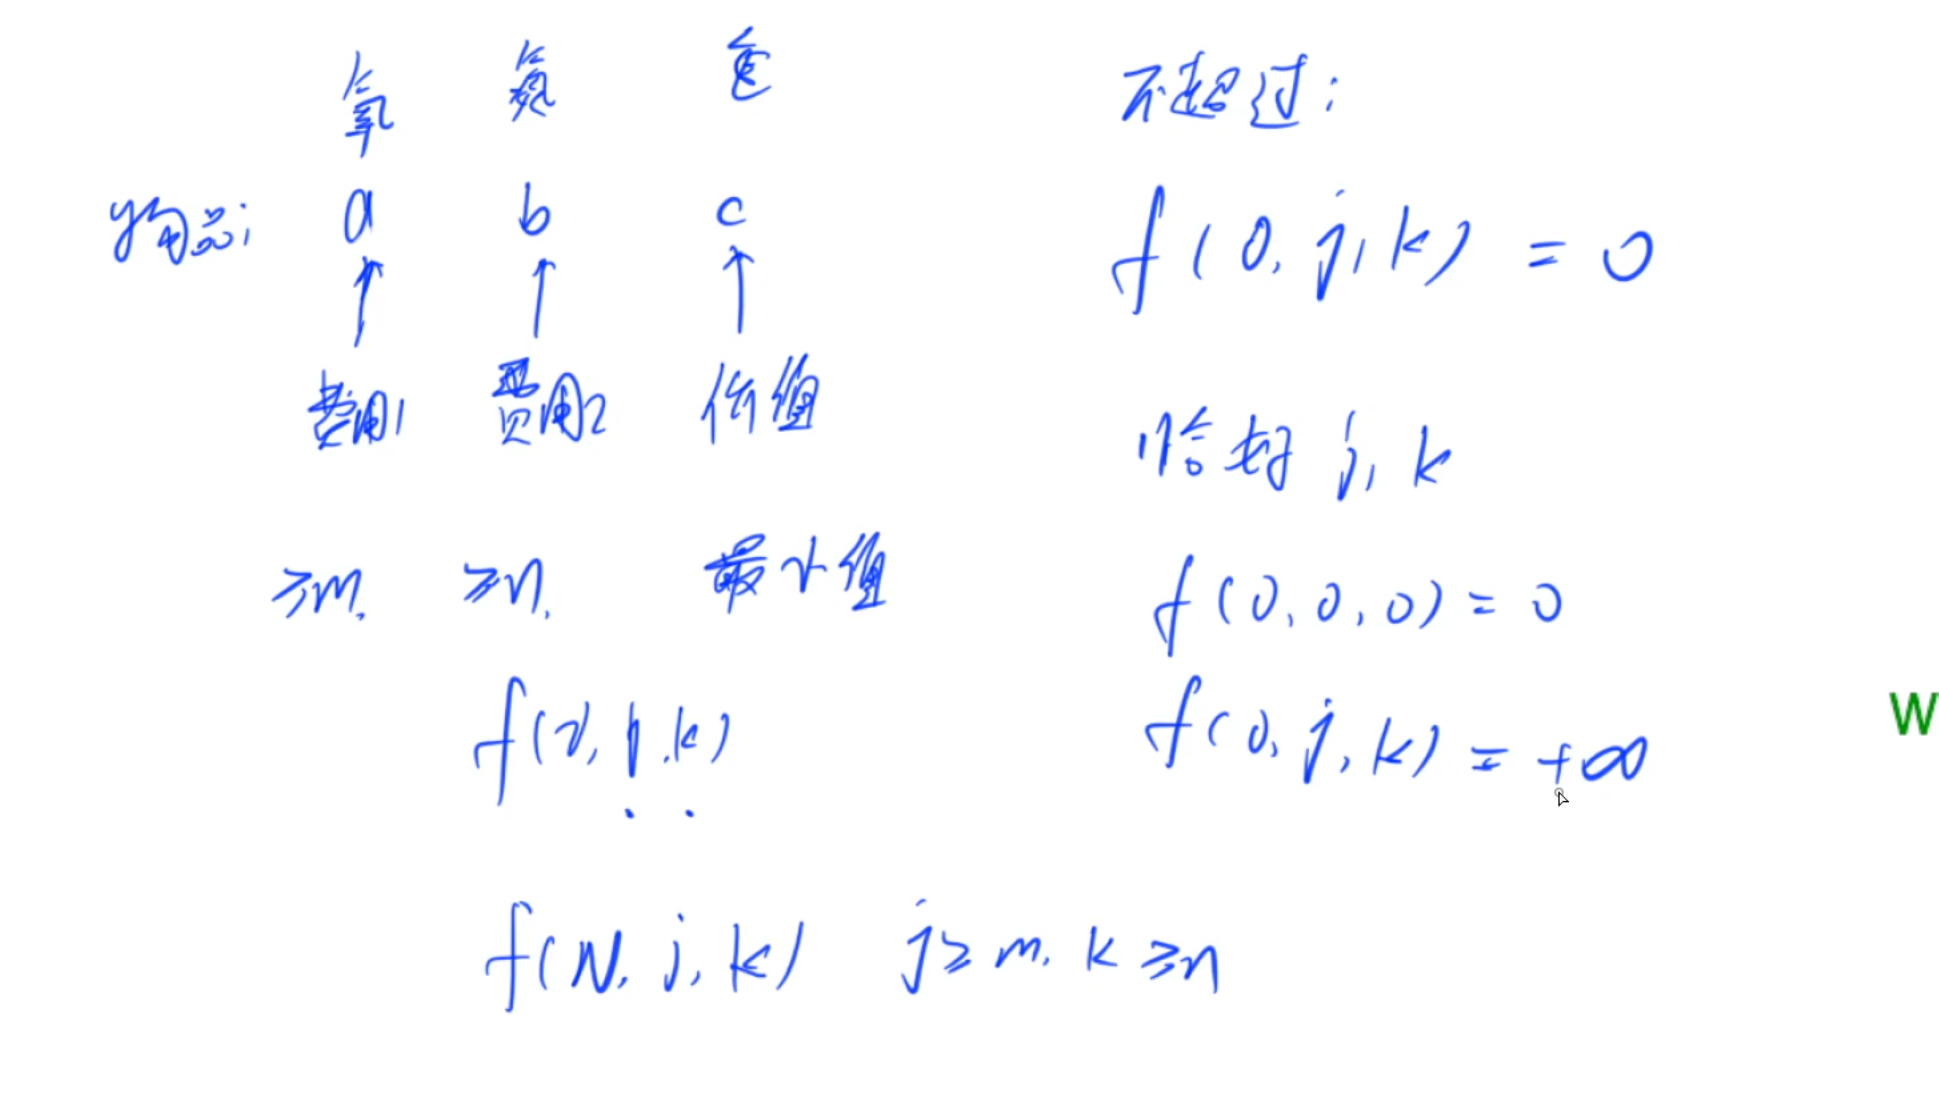 氧 氮 重
物品i a b c
↑ ↑ ↑
费用1 费用2 价值
≥m. ≥n. 最小值
f(i, j, k)
f(N, j, k) j≥m, k≥n
不超过:
f(0, j, k) = 0
恰好 j, k
f(0, 0, 0) = 0
f(0, j, k) = +∞
W